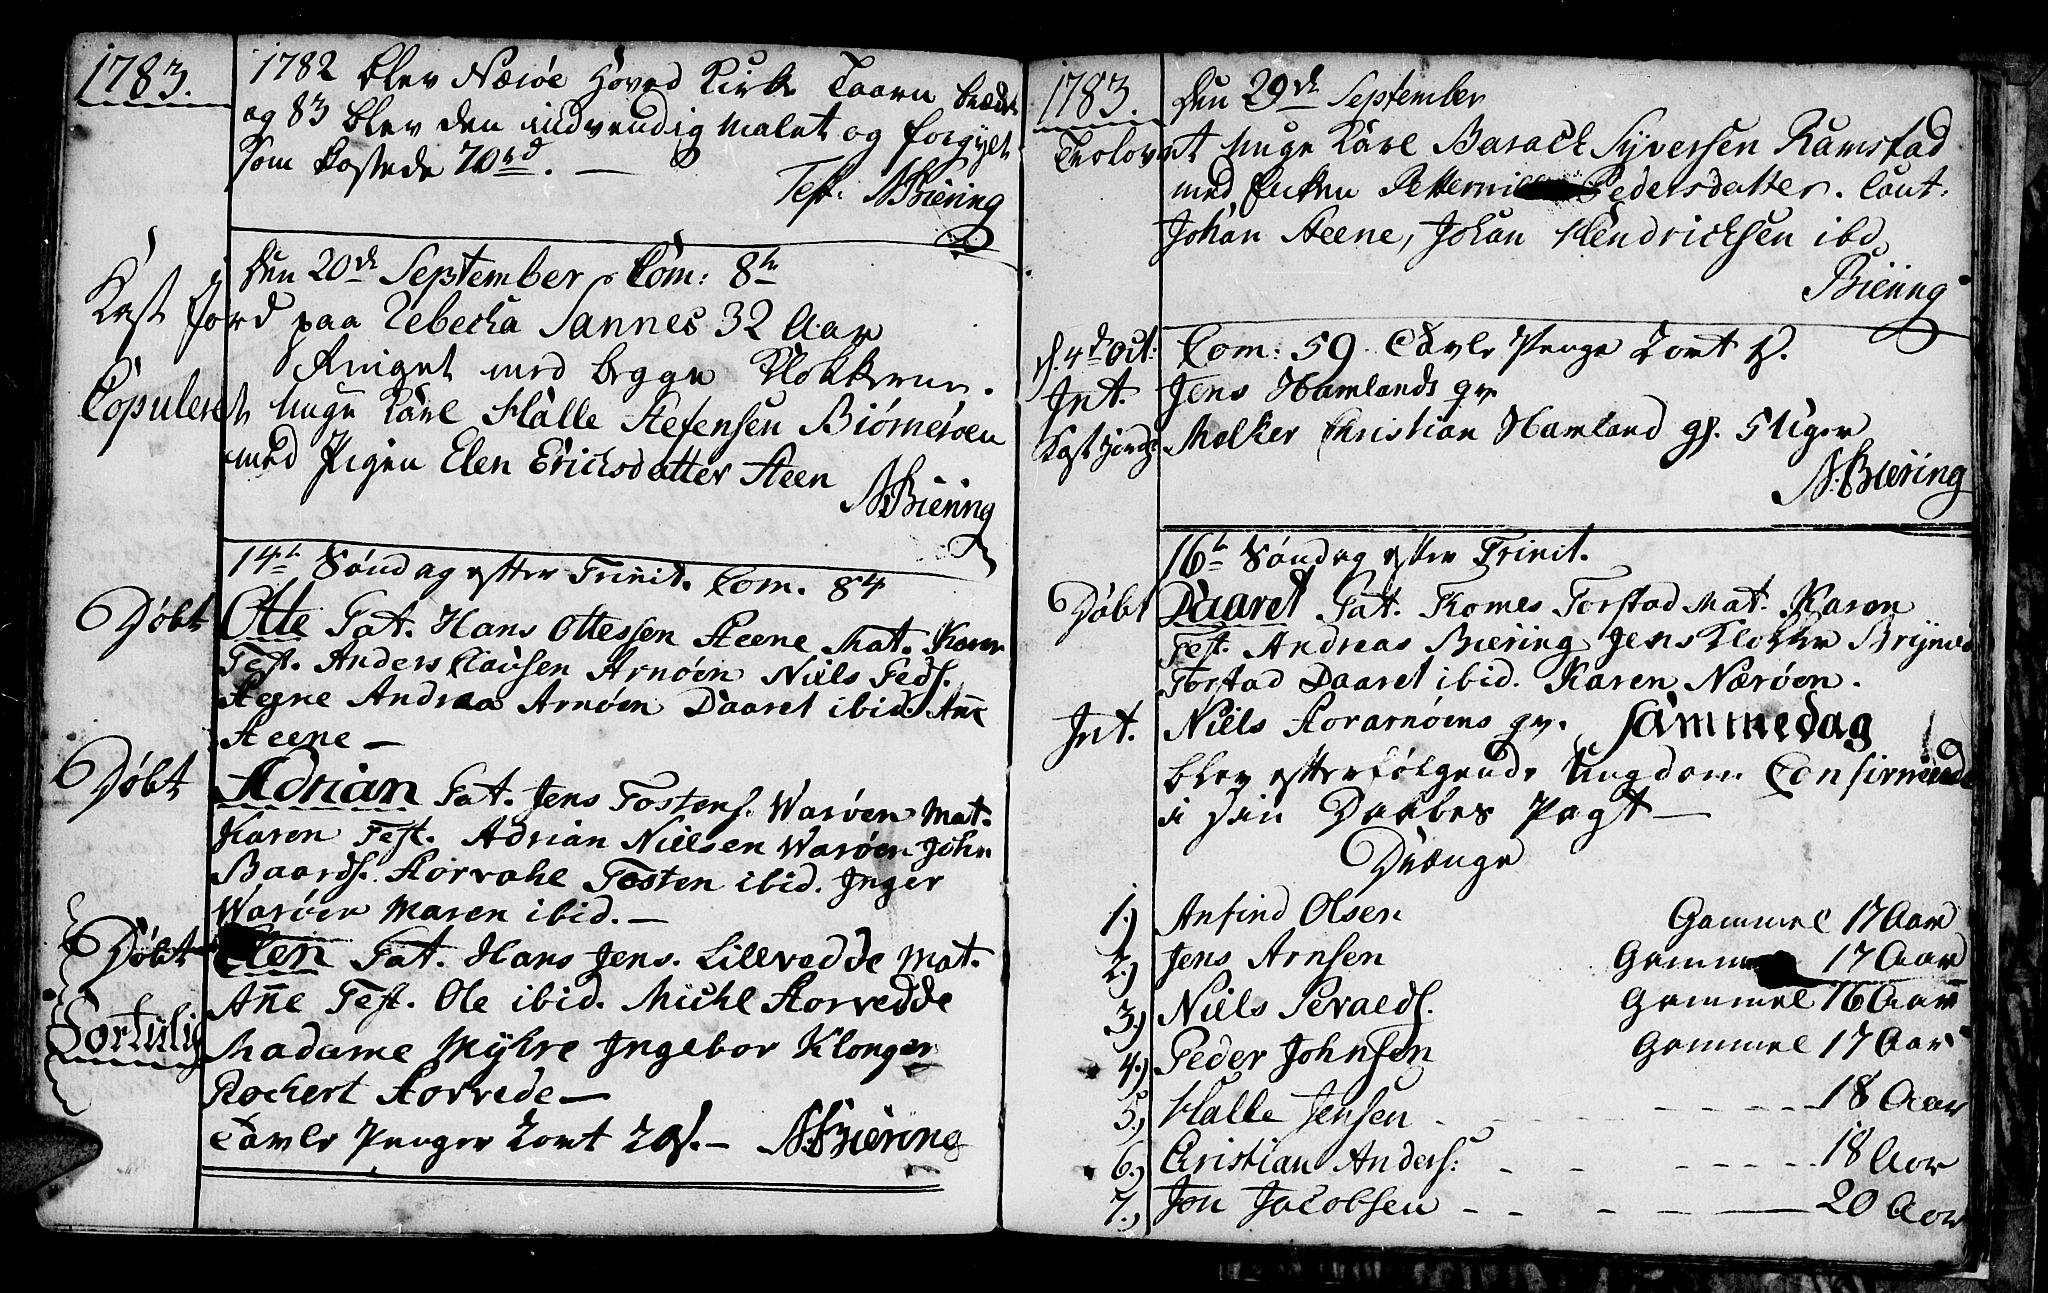 1783.
1782 blev Nærøe Hoved Kirke Taarn bræde
og 83 blev den indvendig malet og forgylt
som kostede 70 rd. —
Test. N Biering
Den 20de September Com: 8te
Kast Jord paa Rebecka Sannes 32 Aar
Ringet med begge Klokkerne.
Copuleret unge Karl Halle Stefensen Biørnerøen
med Pigen Elen Ericksdatter Steen
N Biering
14te Søndag efter Trinit. Com. 84
Døbt Otte Fat. Hans Ottessen Steene Mat. Karen
Test. Anders Clausen Arnøen Niels Peds.
Steene Andrea Arnøen Daaret ibid. Anne
Steene —
Døbt Adrian Fat. Jens Tostens. Warøen Mat.
Karen Test. Adrian Nielsen Warøen John
Baards. Storvahl Tosten ibid. Inger
Warøen Maren ibid. —
Døbt Elen Fat. Hans Jens. Lillvedde Mat.
Anne Test. Ole ibid. Michl Storvedde
Madame Myhre Ingebor Klonger
Rochert Storvede —
Tavle Penger
N. Biering
1783.
Den 29de September
Trolovet unge Karl Barack Syversen Ramstad
med Enken Pedersdatter. Caut:
Johan Steene, Johan Hendricksen ibd.
Biering
d. 4de Oct: Com: 59. Tavle Penge
Int. Jens Hamlands qv.
Kast Jord paa Melker Christian Hamland gl. 5 Uger
N. Biering
16te Søndag efter Trinit.
Døbt Daaret Fat. Thomes Torstad Mat. Karen
Test. Andreas Biering Jens Klokker
Torstad Daaret ibid. Karen Nærøen.
Int. Niels Storarnøens qv. sammedag
blev efterfølgende Ungdom Confirmerede
i sin Daabes Pagt —
Drænge
1.) Anfind Olsen Gammel 17 Aar
2.) Jens Arnsen Gammel 17 Aar
3.) Niels Sevaeds. Gammel 16 Aar
4.) Peder Johnsen Gammel 17 Aar
5.) Halle Jensen - - - - 18 Aar
6.) Christian Anders: - - - - 18 Aar
7.) Jon Jacobsen - - - - 20 Aar